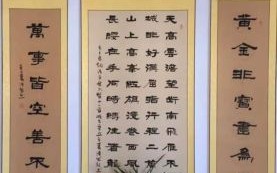 黃金非寶書為
天高雲淡望斷南飛雁不
城非好漢屈指行程二萬
山上高峯紅旗漫卷西風
長纓在手何時縛住蒼
萬事皆空善不